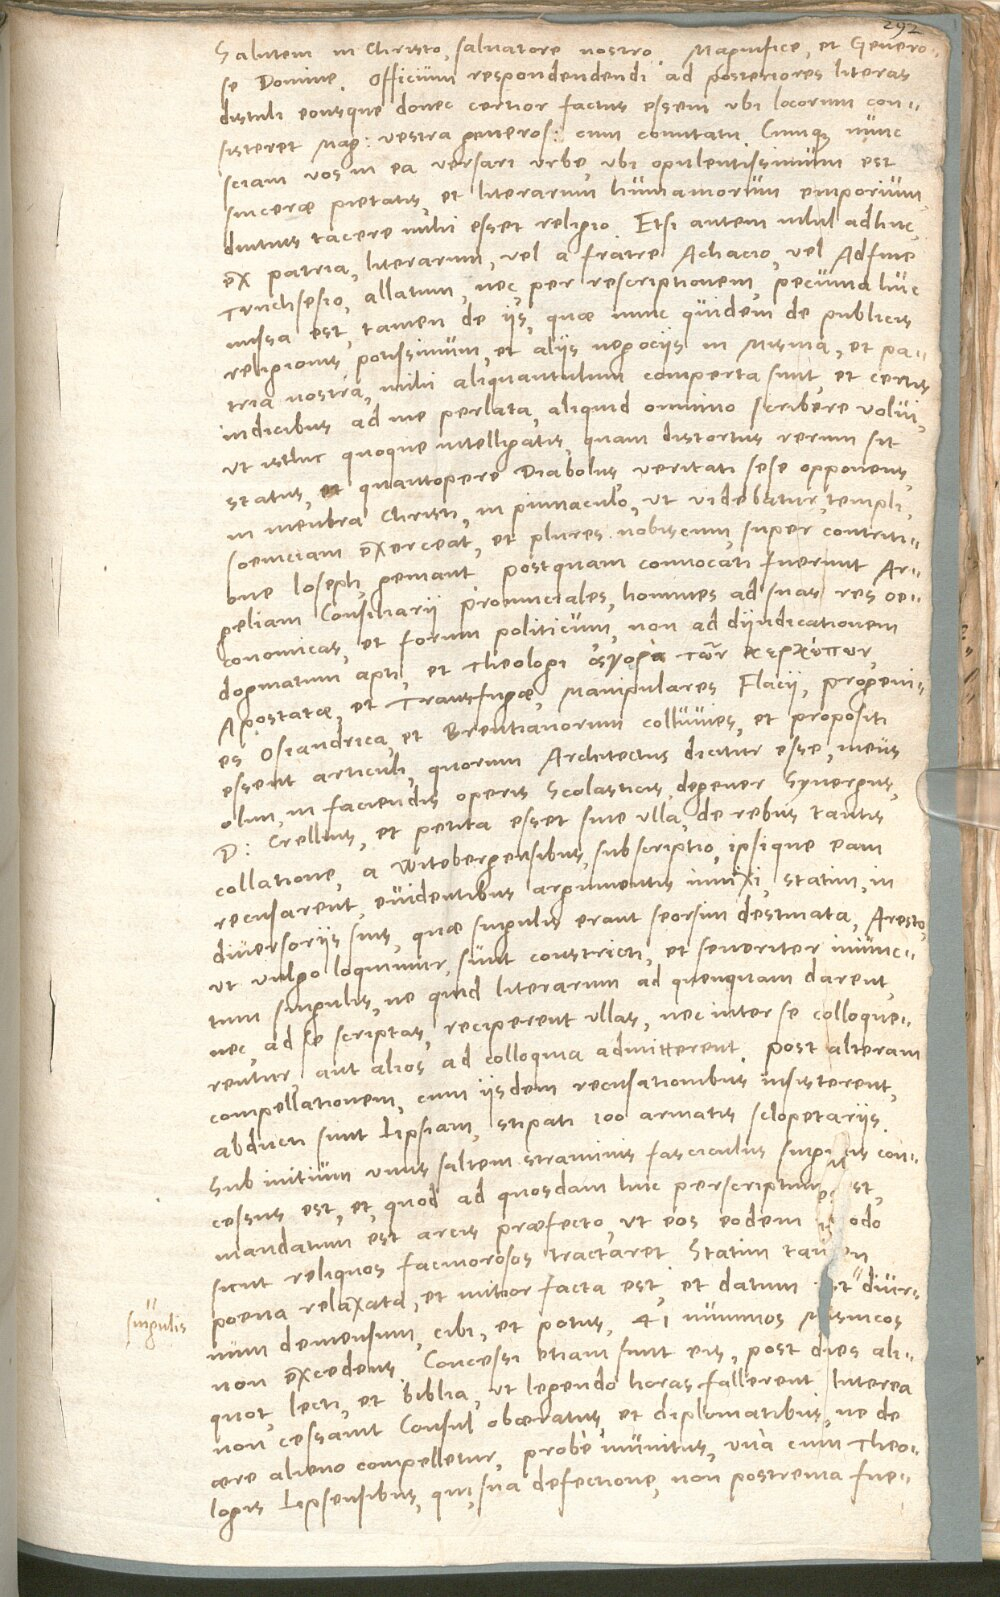 292
Salutem in Christo, salvatore nostro. Magnifice, et Genero-
se Domine. Officium respondendendi ad posteriores literas
distuli eousque donec certior factus essem ubi locorum con-
sisteret Mag: vestra generos: cum comitatu. Cumq nunc
sciam vos in ea versari urbe, ubi opulentissimum est
sinceræ pietatis, et literarum humaniorum emporium,
diutius tacere mihi esset religio. Etsi autem nihil adhuc,
ex patria, literarum, vel a fratre Achacio, vel Adfine
Truchsesio, allatum, nec, per rescriptionem, pecunia huc
missa est, tamen de ijs, quæ nunc quidem de publicis
religionis potissimum, et alijs negocijs in Misnia, et pa-
tria nostra, mihi aliquantulum comperta sunt, et certis
indicibus ad me perlata, aliquid omnino scribere volui,
ut istuc quoque intelligatis, quam distortus rerum sit
status, et quantopere Diabolus, veritati sese opponens,
in membra Christi, in pinnaculo, ut videbatur, templi,
soeviciam exerceat, et plures nobiscum, super contriti-
one Ioseph, gemant. Postquam convocati fuerunt Ar-
geliam Consiliarij provinciales, homines ad suas res oe-
conomicas, et forum politicum, non ad dijudicationem
dogmatum apti, et Theologi ἀγορὰ τῶν κερκώπων,
Apostatæ, et Transfugæ, Manipulares Flacij, progeni-
es Osiandrica, et Brentianorum colluvies, et propositi
essent articuli, quorum Architectus dicitur esse, meus
olim, in faciendis operis Scolasticis, degener Synergus,
D: Crellius, et petita esset sine ulla, de rebus tantis
collatione, a Witebergensibus, subscriptio, ipsique eam
recusarent, evidentibus argumentis innixi, statim, in
diversorijs suis, quæ singulis erant seorsim destinata, Aresto,
ut vulgo loquuntur, sunt constricti, et severiter iniunc-
tum singulis, ne quid literarum ad quenquam darent,
nec, ad se scriptas, reciperent ullas, nec inter se colloque-
rentur, aut alios ad colloquia admitterent. Post alteram
compellationem, cum ijsdem recusationibus insisterent,
abducti sunt Lipsiam, stipati 100 armatis sclopetarijs.
Sub initium unus saltem straminis fasciculus singulis con-
cessus est, et, quod ad quosdam huc perscriptum est,
mandatum est arcis præfecto, ut eos eodem modo
sicut reliquos facinorosos tractaret. Statim tamen
poena relaxata, et mitior facta est, et datum est diur-
singulis
num demensum, cibi, et potus, 41 nummos Misnicos
non excedens. Concessi etiam sunt eis, post dies ali-
quot, lecti, et biblia, ut legendo horas fallerent. Interea
non cessavit Consul obæratus, et diplomatibus, ne de
ære alieno compelletur, probe munitus, una cum Theo-
logis Lipsensibus, qui, sua defectione, non postrema fue-